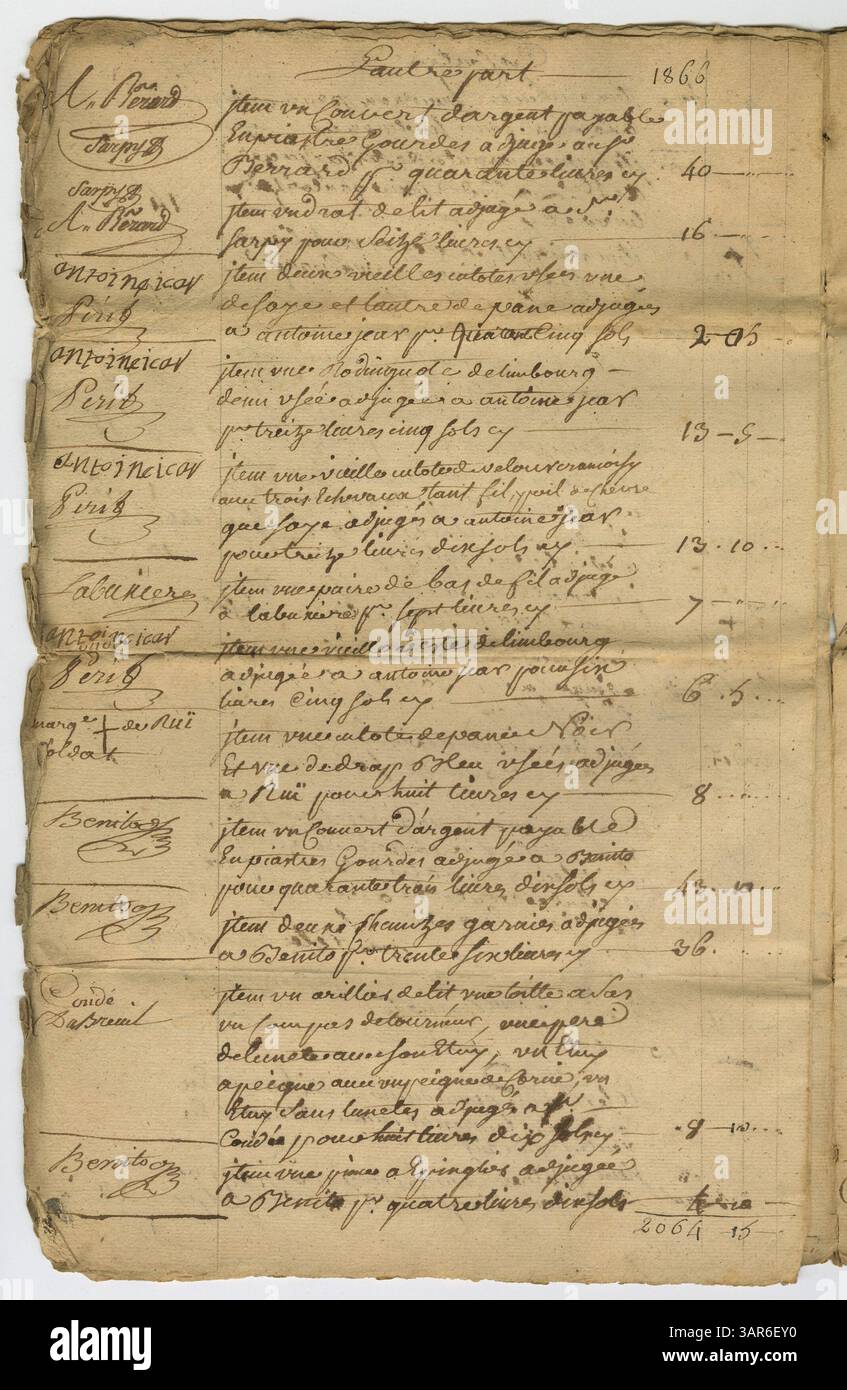 L'autre part 1866
A. Bérard
jtem un Couvert d'argent payable
En piastre Gourdes adjugé au Sr
Sarpy
Berrard pr. quarante livres cy 40
Sarpy
jtem un drat de lit adjugé a Sr.
A. Bérard
Sarpy pour Seize livres cy 16
antoineicar
jtem deux vieilles culotes usées une
de soye et l'autre de pane adjugés
Périt
a antoine jcar pr. Cinq sols 2 05
antoineicar
jtem une Rodingude de limbourg
Périt
demi usée adjugée a antoine jcar
pr. treize livres cinq sols cy 13 - 5
antoineicar
jtem une vieille culote de velour cramoisy
avec trois Echevaux tant fil, poil de chevre
Périt
que soye adjugés a antoine jcar
pour treize livres dix sols cy 13. 10
Labuxiere
jtem une paire de bas de fil adjugé
a labuxiere pr. sept livres cy 7
antoineicar
jtem une vieille veste de limbourg
Périt
adjugée a antoine jcar pour six
livres Cinq sols cy 6. 5
marqe + de Ruï
soldat
jtem une culote de pane Noir
Et une de drap Bleu usées adjugés
a Ruï pour huit livres cy 8
Benito
jtem un Couvert d'argent payable
En piastres Gourdes adjugé a Benito
pour quarante trois livres dix sols cy 43. 10
Benito
jtem deux Chemizes garnies adjugées
a Benito pr. trente six livres cy 36.
Condé
jtem un orillier de lit une toille a Sas
DuBreuil
un Compas de tourneur, une pere
de lunete avec son Etuy, un Etuy
a peigne avec un peigne de Corne, un
Etuy sans lunetes adjugés a Sr.
Condée pour huit livres dix sols cy 8 10
Benito
jtem une pince a Epingles adjugée
a Benito pr. quatre livres dix sols 4 10
2064 15
alamy
Image ID: 3AR6EY0
www.alamy.com